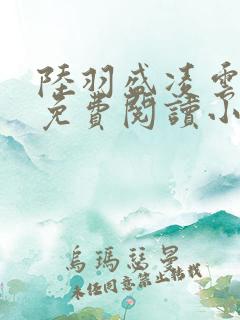 陸羽盛凌雲
免費閱讀小
烏瑪瑟曼
未經同意禁止轉載